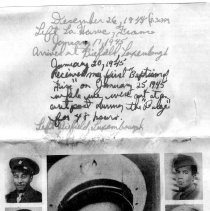 December 26, 1944
Left Le Havre, France
January 17, 1945
Arrived at Bigfeld, Luxemburgh
January 20, 1945
Received my first "Baptism of
Fire" on January 25 1945
while we were out at an
outpost during the "Bulge"
for 48 hours.
Left Bigfeld, Luxemburgh